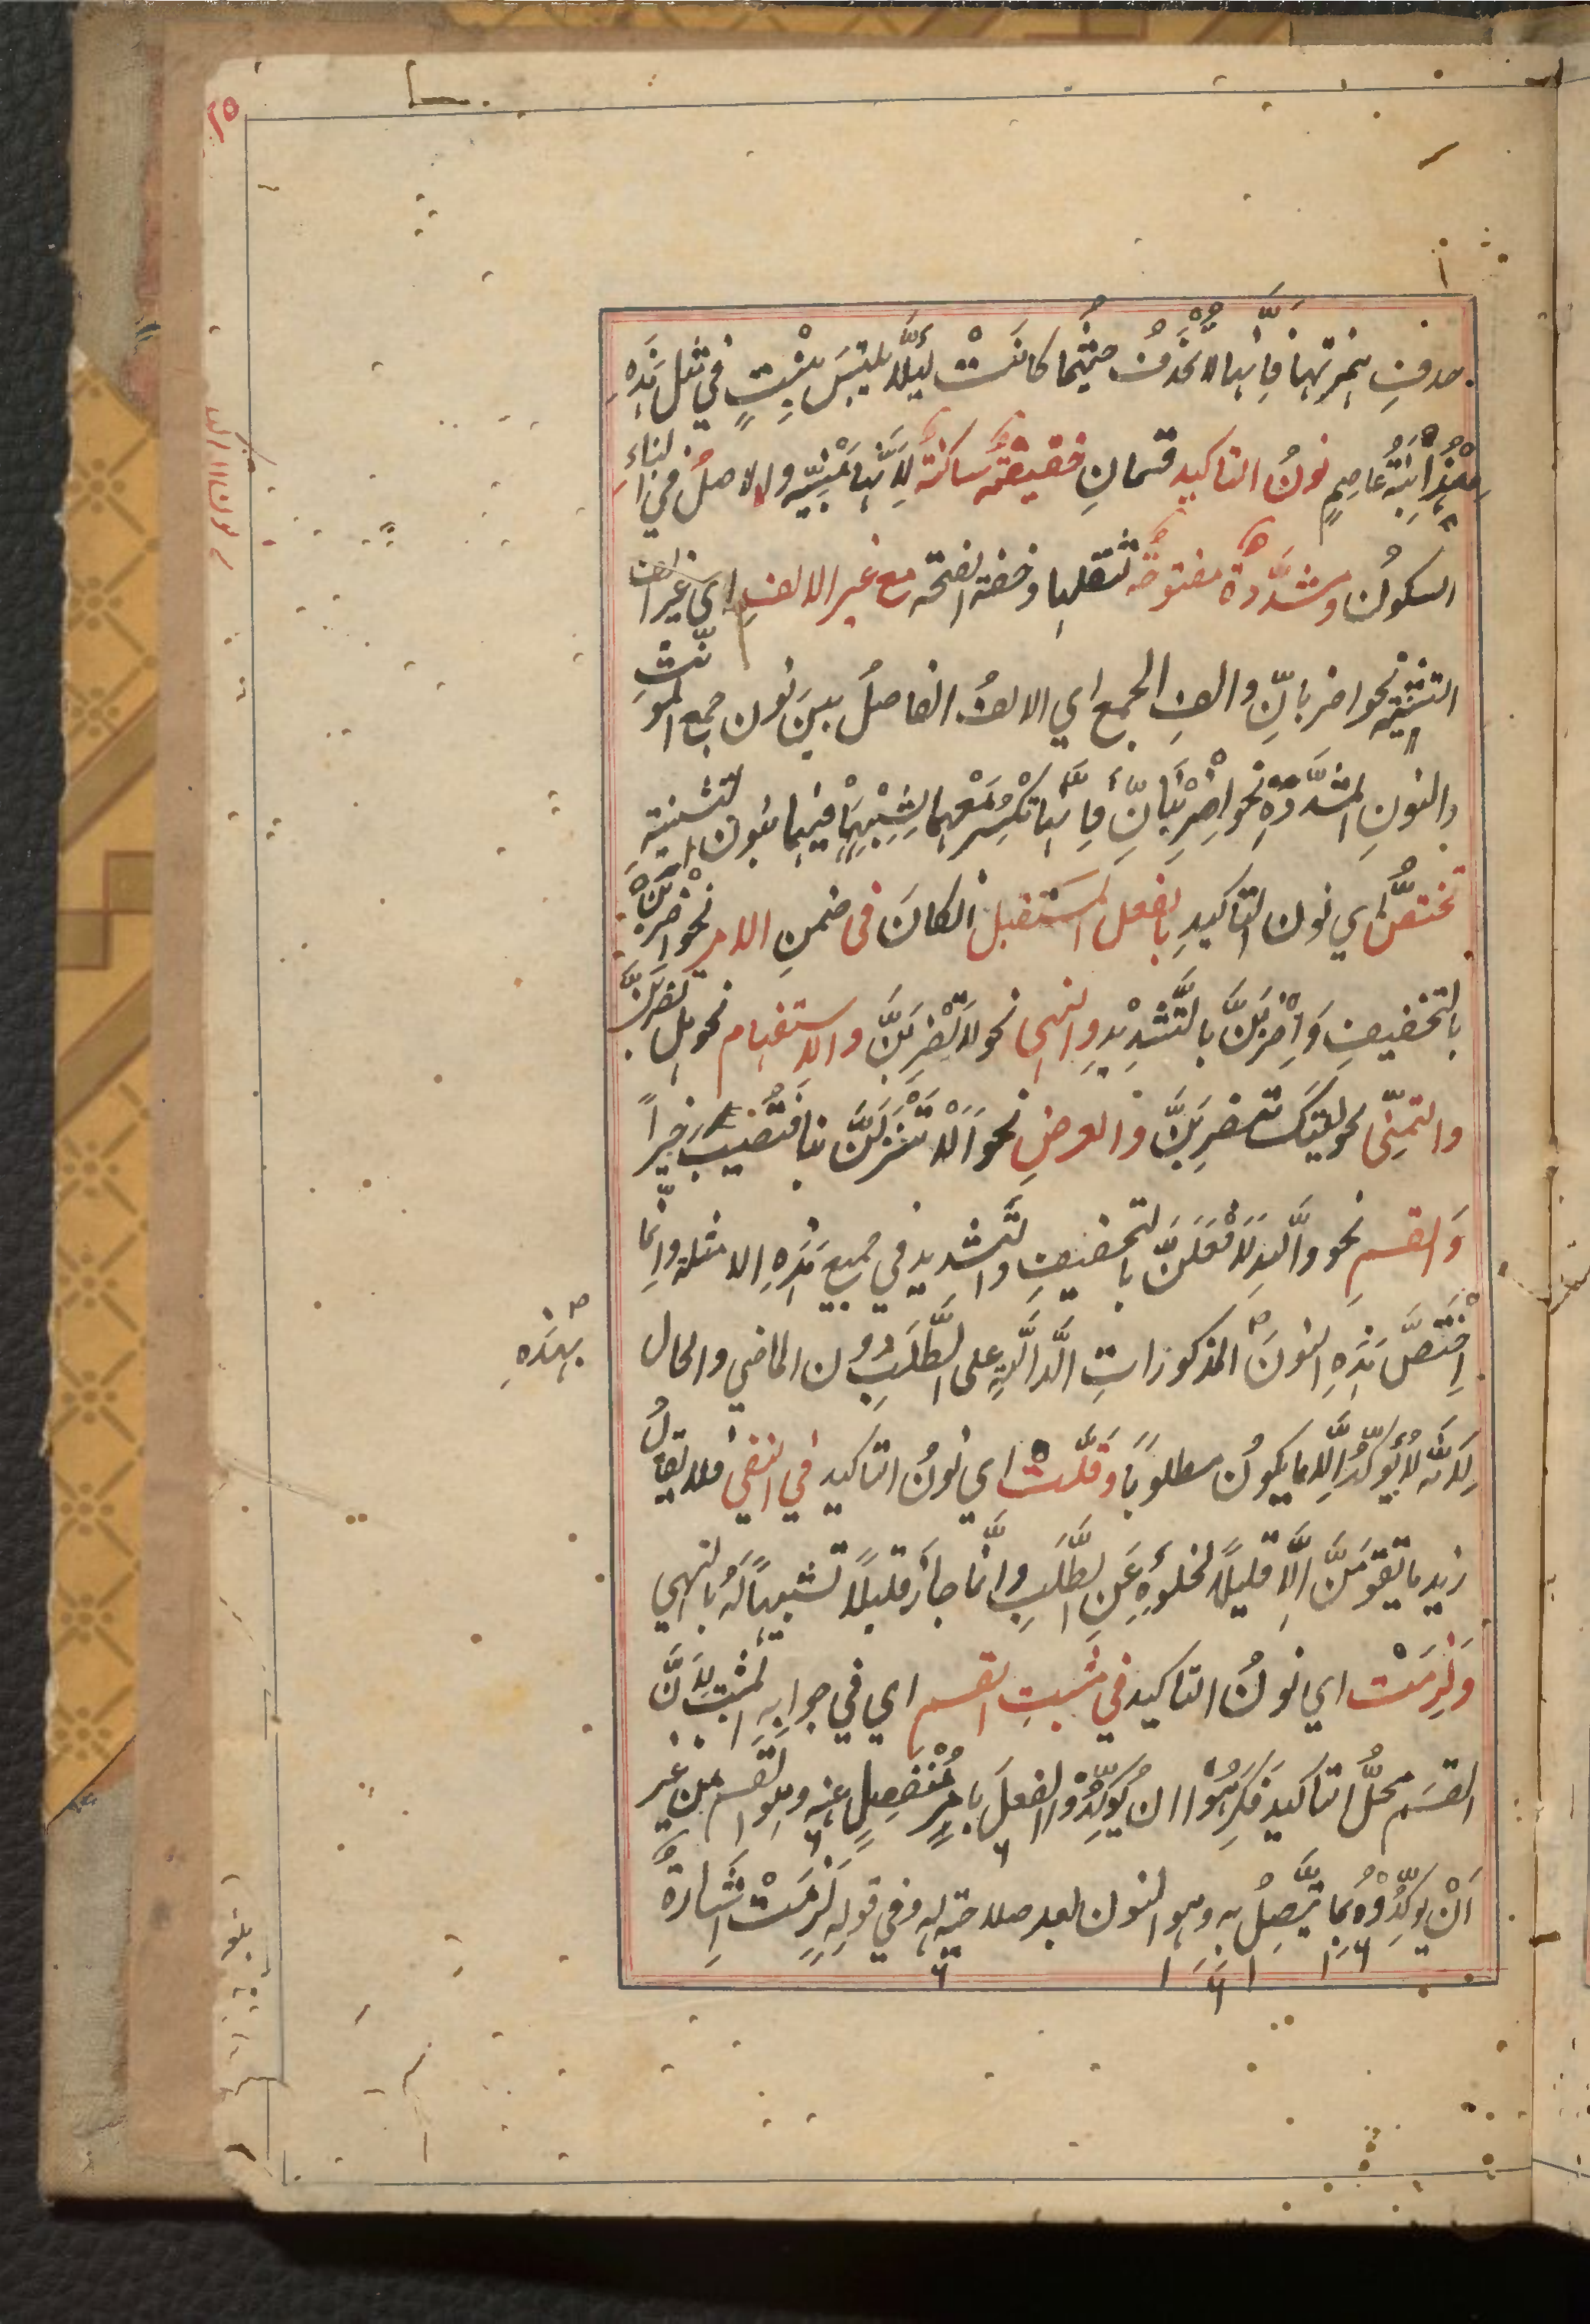 حذفِ همزتها فَاِنَّها لاُ تُحْذَفُ حيثُما كانَتْ لِئَلَّا يلتبَس بِبِنْتٍ في مثل هَذِهِ
هِنْدُ اِبْنَةُ عَاصِمٍ نونُ التاكيد قسمانِ خفيفةٌ ساكنةٌ لِاَنَّهَا مَبْنِيَّه والاصلُ في البناءِ
السكونُ ومشدَّدةٌ مفتوحةٌ لثقلها وخفة الفتحه مع غير الالفِ اي غير الف
التثنيه نحو اضربانِّ والفِ الجمع اي الالفُ الفاصلُ بينَ نون جمع المؤنّثِ
والنونِ المشدَّدةِ نحو اِضْرِبْنَانِّ فَاِنَّها تُكْسَرُ مَعْهما لِشِبْهِهَا فيهما بنون التثنية
تختصُّ اي نون التاكيدِ بالفعل المستقبل الكانَ فى ضمنِ الامر نحو اضربَنْ
بالتخفيفِ وَاِضْرِبَنَّ بالتَّشْدِيدِ والنهى نحو لَا تَضْرِبَنَّ والاستفهام نحو هل تضربَنَّ
والتمنّى نحو ليتَكَ تضرِبَنَّ والعرضِ نحو اَلَا تَنْزِلَنَّ بنا فَتُصيبَ خيراً
وَالقسمِ نحو واللّٰهِ لَاَفْعَلَنَّ بالتخفيفِ والتَّشديد في جميع هَذِهِ الامثلة وانَّما
اِخْتَصَّ هَذِهِ النونَ المذكوراتِ الدَّالَّةِ على الطَّلَبِ دون الماضي والحال
بهذهِ
لِاَنَّه لَا يُؤكّدُ اِلَّا ما يكونُ مطلوباً وَقَلَّتْ اي نونُ التاكيد في النفى فلا يقالُ
زيد ما يقومَنَّ اِلَّا قليلًا لخلوِّهِ عَنِ الطَّلَبِ وانَّما جازَ قليلاً تشبيهاً لَهُ بالنهي
وَلَزِمَتْ اي نونُ التاكيد في مثبتِ القسم اي في جوابِهِ المثبت لِاَنَّ
القسَم محلُّ التاكيد فَكَرِهُوْا ان يُؤكِّدُوْا الفعلَ بامرٍ مُنْفَصِلٍ عنه وهو القسم من غير
اَنْ يؤكِّدُوْهُ بِما يَتَّصِلُ به وهو النون بعد صلاحيّه له وفي قوله لَزِمَتْ اِشَارةٌ